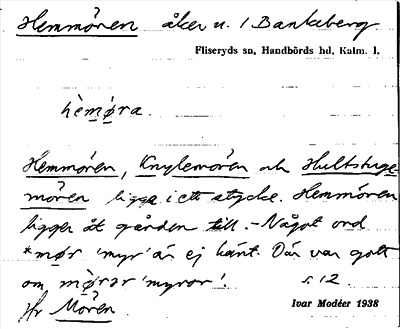 Hemmören åker u. 1 Bankeberg
Fliseryds sn, Handbörds hd, Kalm. l.
hèmø̣ra.
Hemmören, Knylemören och Hultstuge-
mören ligga i ett stycke. Hemmören
ligger åt gården till. - Något ord
*mør 'myr' är ej känt. Där var gott
om mø̀rar 'myror'. s. 12.
Jfr Mören.
Ivar Modéer 1938